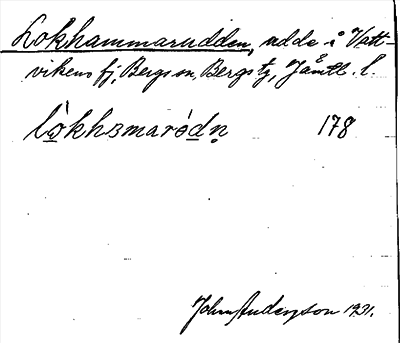 Lokhammarudden, udde i Vatt-
vikens fj, Bergs sn, Bergs tg, Jämtl. l.
lòkhamaródṇ 178
John Anderzson 1931.